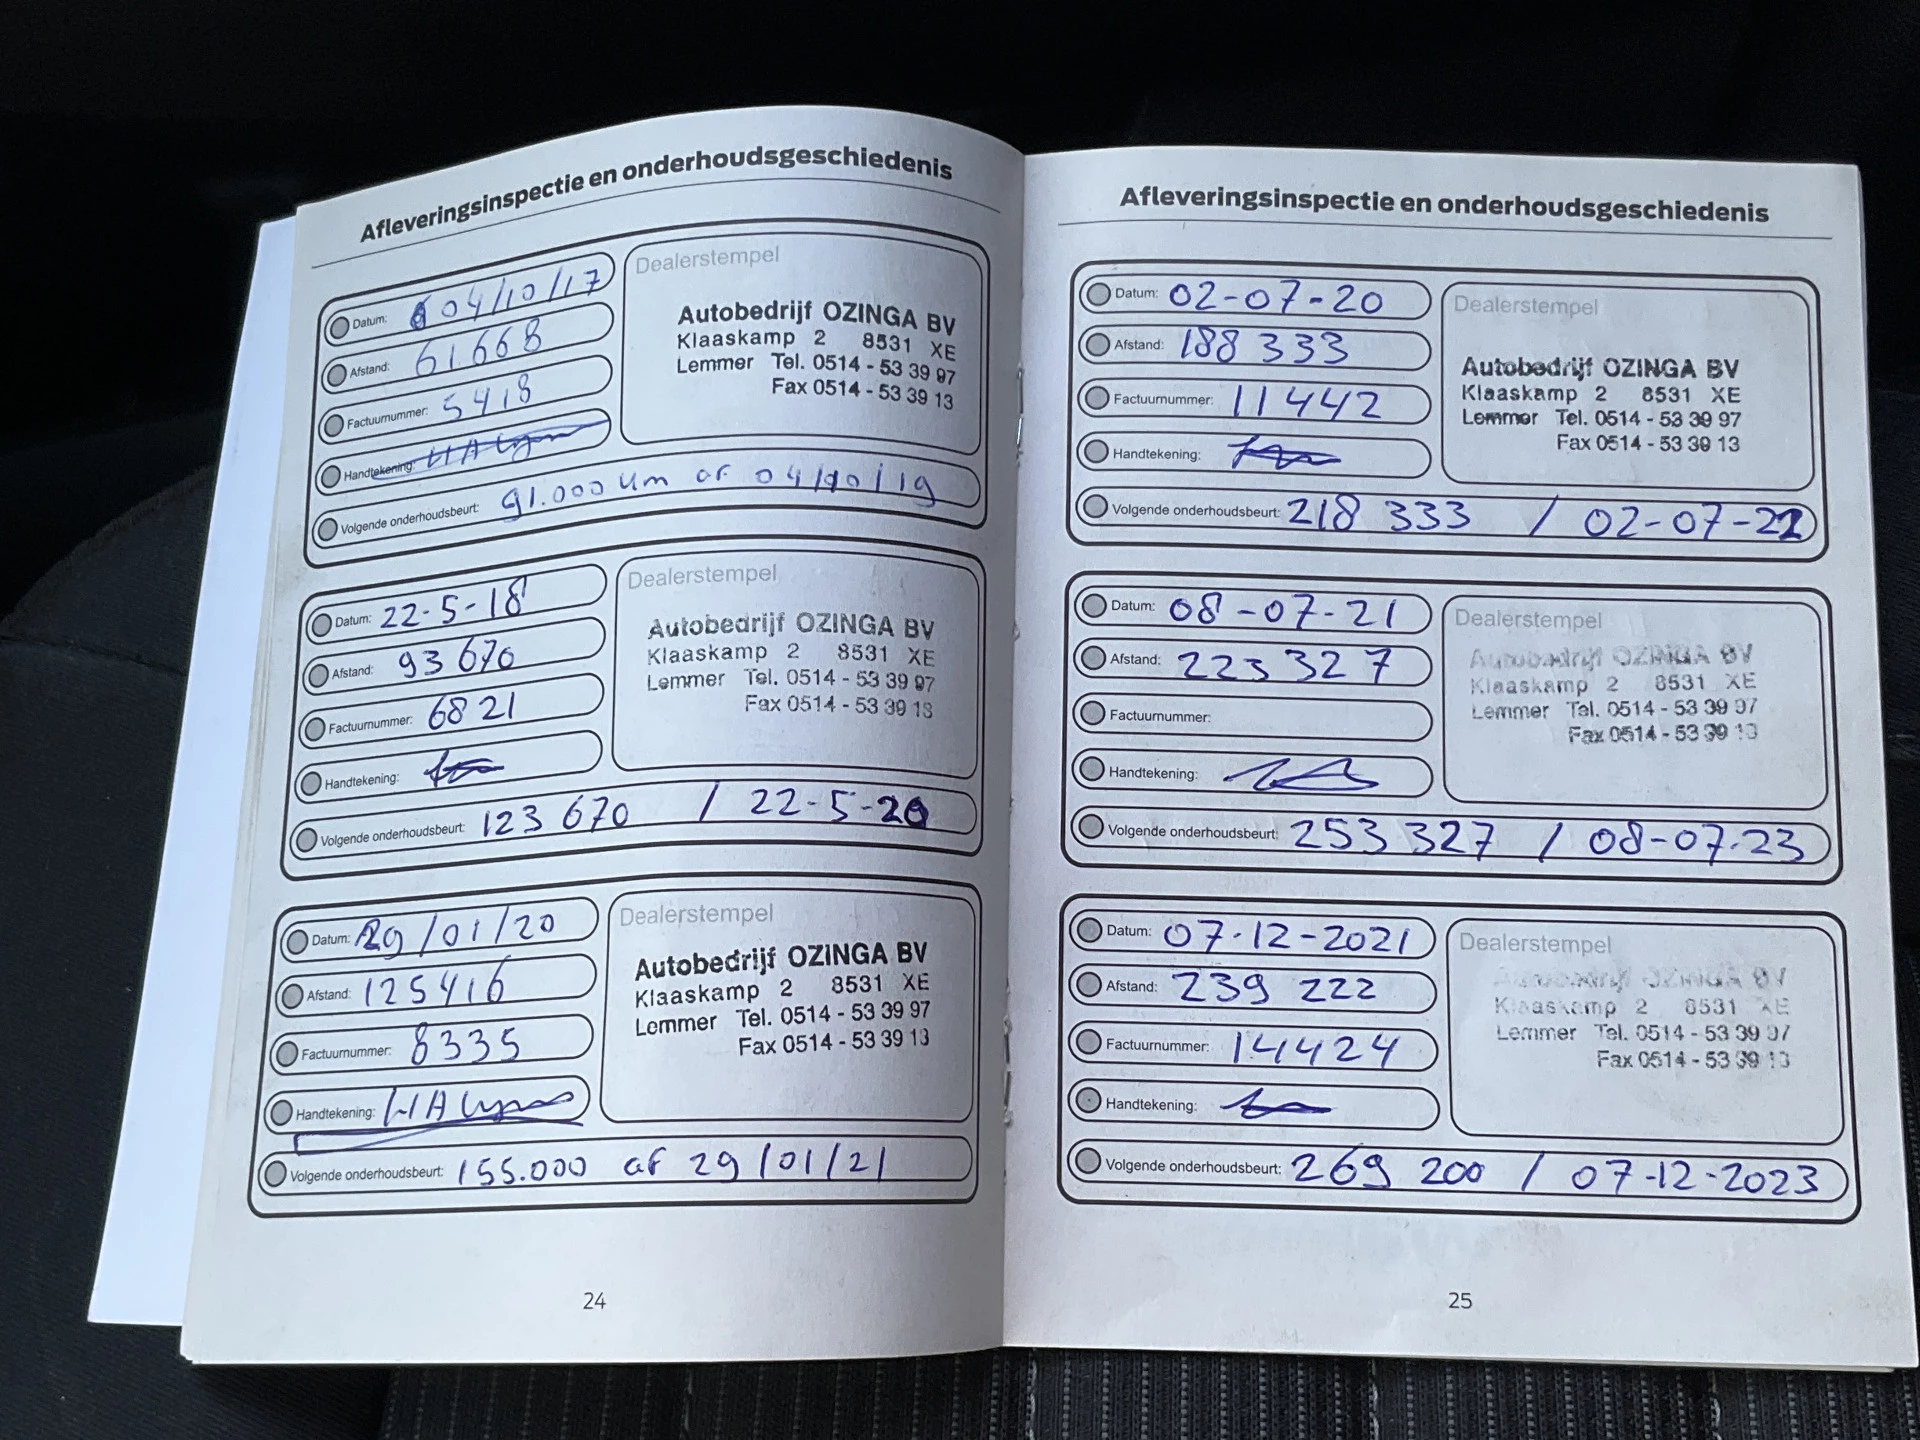 Afleveringsinspectie en onderhoudsgeschiedenis
Datum: 04/10/17
Afstand: 61.668
Factuurnummer: 5418
Handtekening:
Volgende onderhoudsbeurt: 91.000 km of 04/10/19
Dealerstempel
Autobedrijf OZINGA BV
Klaaskamp 2 8531 XE
Lemmer Tel. 0514 - 53 39 97
Fax 0514 - 53 39 13
Datum: 22-5-18
Afstand: 93 670
Factuurnummer: 6821
Handtekening:
Volgende onderhoudsbeurt: 123 670 / 22-5-20
Dealerstempel
Autobedrijf OZINGA BV
Klaaskamp 2 8531 XE
Lemmer Tel. 0514 - 53 39 97
Fax 0514 - 53 39 13
Datum: 29/01/20
Afstand: 125416
Factuurnummer: 8335
Handtekening:
Volgende onderhoudsbeurt: 155.000 of 29/01/21
Dealerstempel
Autobedrijf OZINGA BV
Klaaskamp 2 8531 XE
Lemmer Tel. 0514 - 53 39 97
Fax 0514 - 53 39 13
24
Afleveringsinspectie en onderhoudsgeschiedenis
Datum: 02-07-20
Afstand: 188 333
Factuurnummer: 11442
Handtekening:
Volgende onderhoudsbeurt: 218 333 / 02-07-22
Dealerstempel
Autobedrijf OZINGA BV
Klaaskamp 2 8531 XE
Lemmer Tel. 0514 - 53 39 97
Fax 0514 - 53 39 13
Datum: 08-07-21
Afstand: 223 327
Factuurnummer:
Handtekening:
Volgende onderhoudsbeurt: 253 327 / 08-07-23
Dealerstempel
Autobedrijf OZINGA BV
Klaaskamp 2 8531 XE
Lemmer Tel. 0514 - 53 39 97
Fax 0514 - 53 39 13
Datum: 07-12-2021
Afstand: 239 222
Factuurnummer: 14424
Handtekening:
Volgende onderhoudsbeurt: 269 200 / 07-12-2023
Dealerstempel
Autobedrijf OZINGA BV
Klaaskamp 2 8531 XE
Lemmer Tel. 0514 - 53 39 97
Fax 0514 - 53 39 13
25